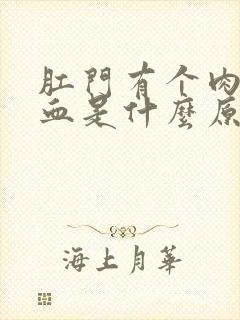 肛門有个肉
血是什麼原
海上月華